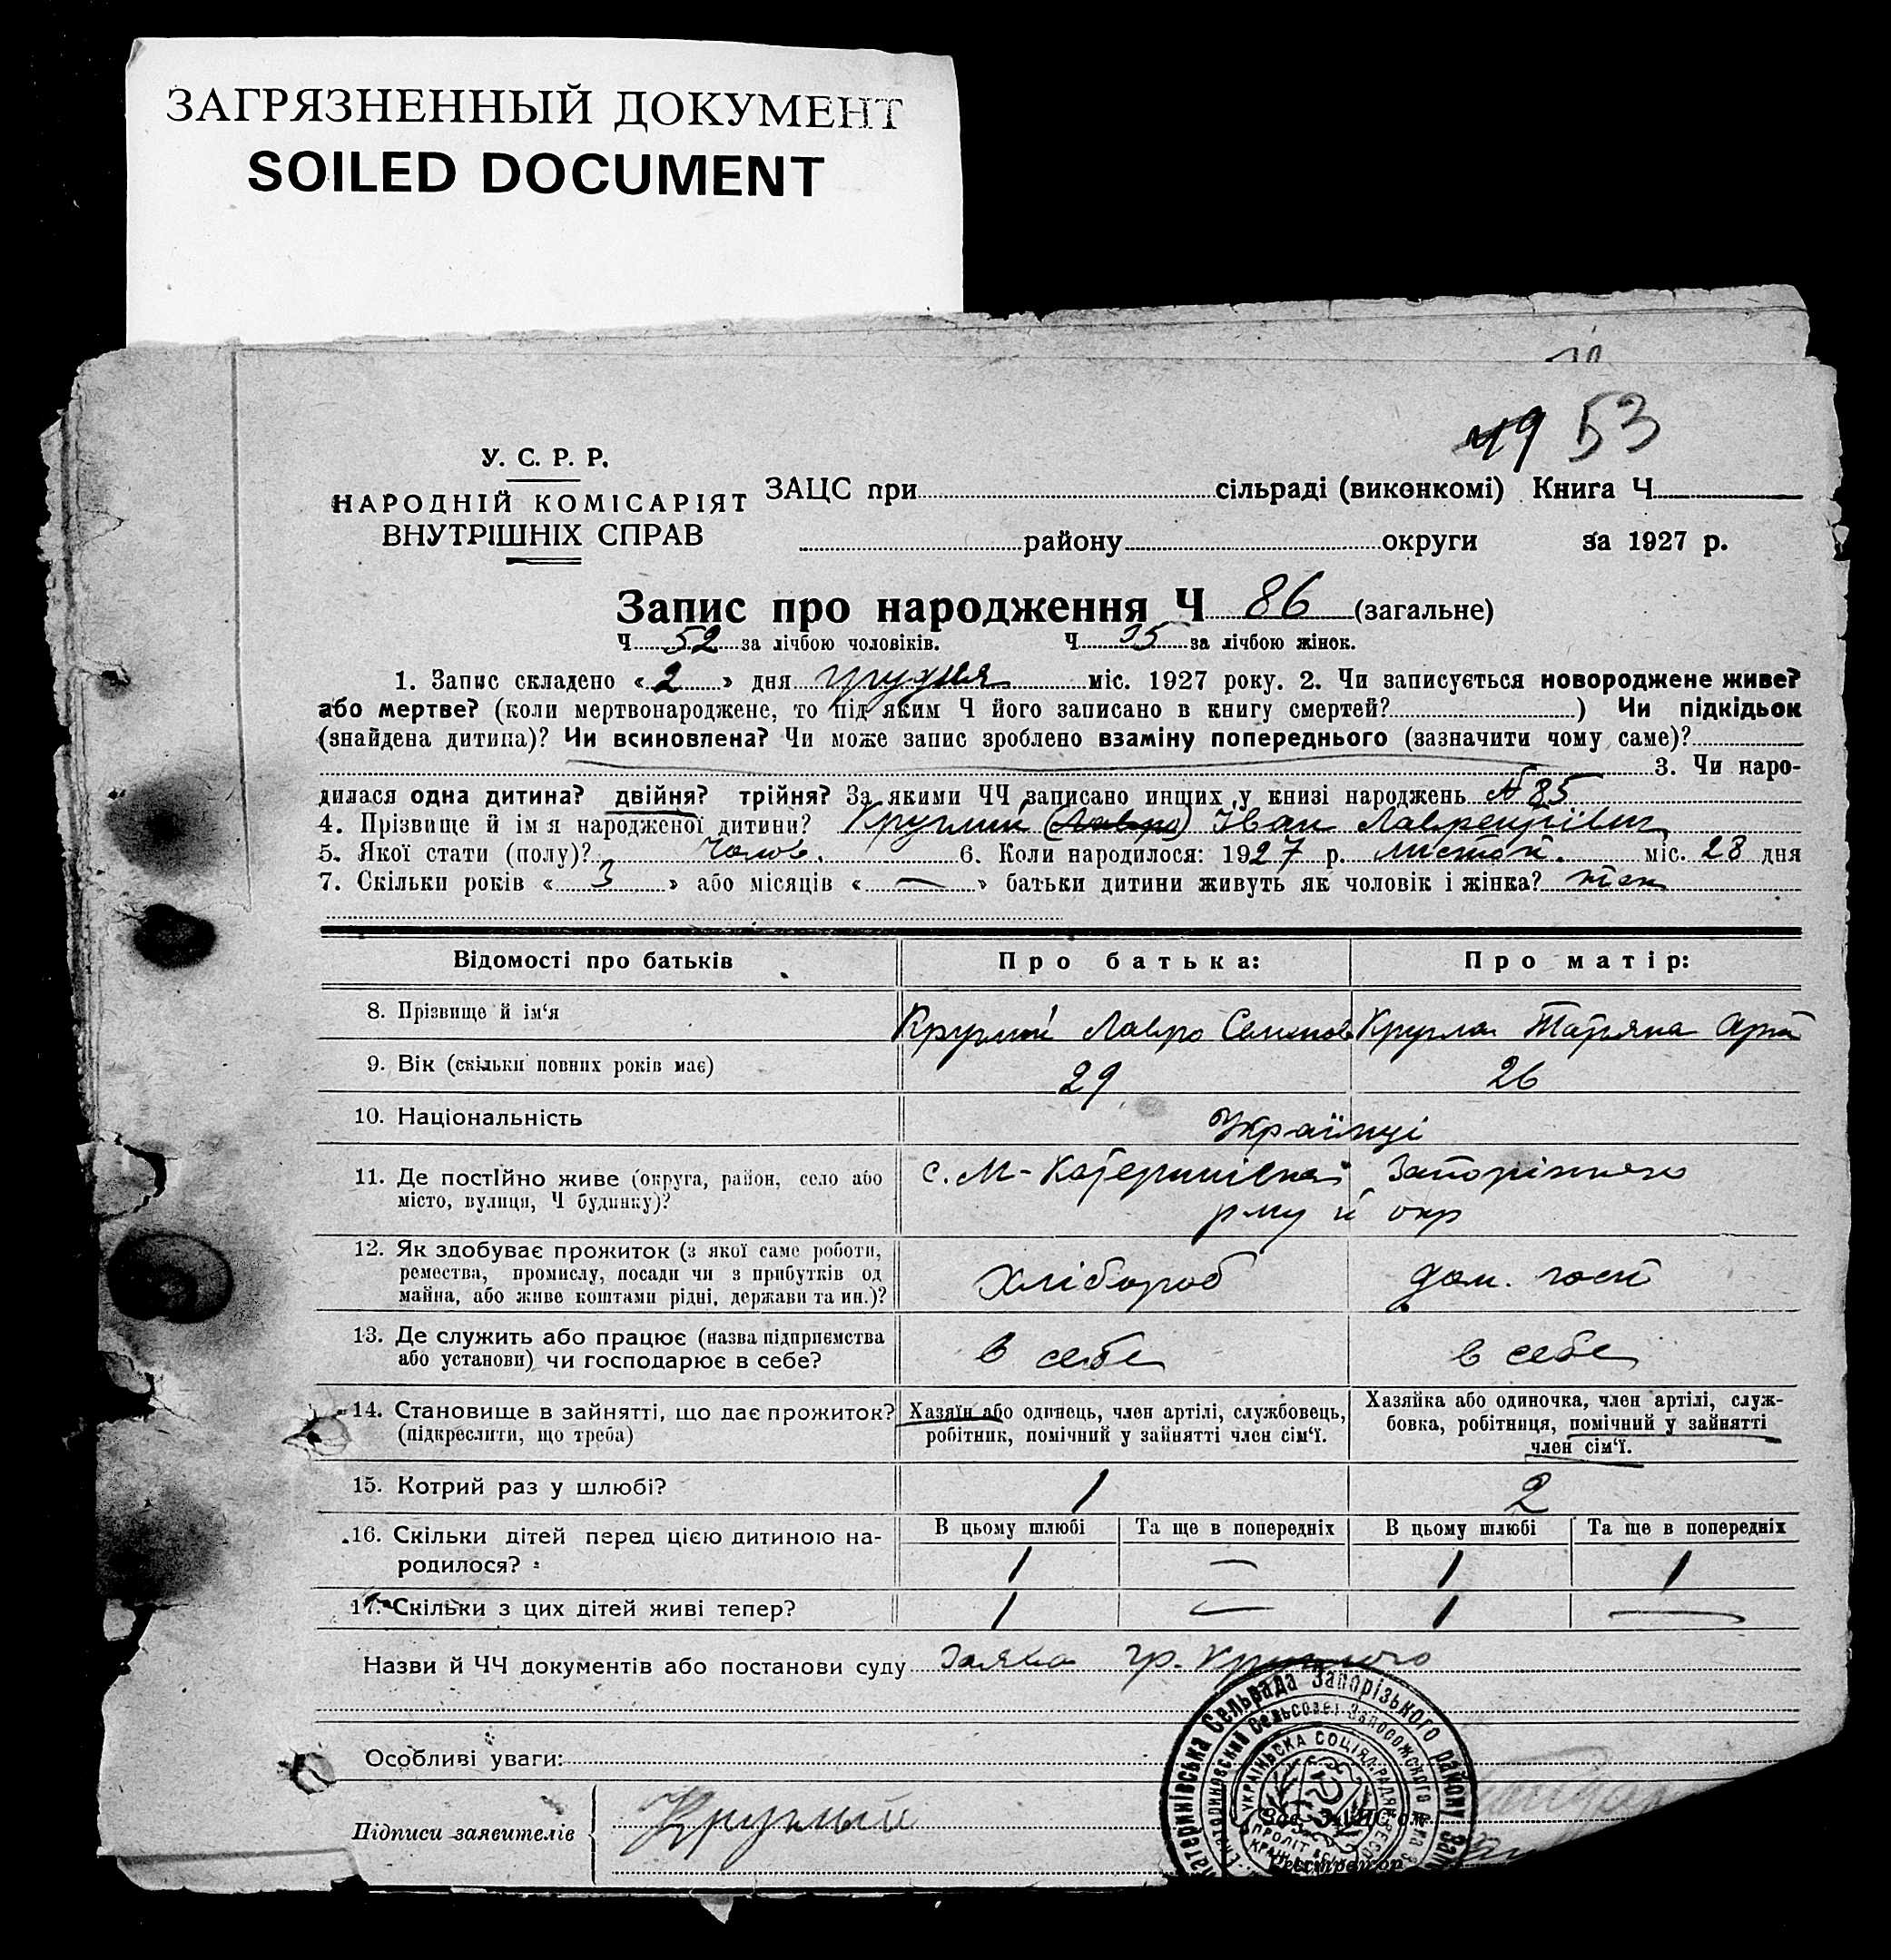 ЗАГРЯЗНЕННЫЙ ДОКУМЕНТ
SOILED DOCUMENT
49 53
У. С. Р. Р.
НАРОДНІЙ КОМІСАРІЯТ
ВНУТРІШНІХ СПРАВ
ЗАЦС при сільраді (виконкомі) Книга Ч
району округи за 1927 р.
Запис про народження Ч 86 (загальне)
Ч 52 за лічбою чоловіків. Ч 35 за лічбою жінок.
1. Запис складено «2» дня грудня міс. 1927 року. 2. Чи записується новороджене живе?
або мертве? (коли мертвонароджене, то під яким Ч його записано в книгу смертей?) Чи підкідьок
(знайдена дитина)? Чи всиновлена? Чи може запис зроблено взаміну попереднього (зазначити чому саме)?
3. Чи наро-
дилася одна дитина? двійня? трійня? За якими ЧЧ записано инших у книзі народжень № 85
4. Прізвище й імя народженої дитини? Круглий (Лавро) Іван Лаврентієвич
5. Якої стати (полу)? Чолов. 6. Коли народилося: 1927 р. листоп. міс. 28 дня
7. Скільки років «3» або місяців «—» батьки дитини живуть як чоловік і жінка? так
Відомості про батьків Про батька: Про матір:
8. Прізвище й ім‘я Круглий Лавро Семенов Кругла Татряна Арт
9. Вік (скільки повних років має) 29 26
10. Національність Українці
11. Де постійно живе (округа, район, село або
місто, вулиця, Ч будинку)?
с. М-Катеринівка Запоріжжя
рну й окр
12. Як здобуває прожиток (з якої саме роботи,
ремества, промислу, посади чи з прибутків од
майна, або живе коштами рідні, держави та ин.)?
Хлібороб дом. госп
13. Де служить або працює (назва підприємства
або установи) чи господарює в себе?
в себе в себе
14. Становище в зайнятті, що дає прожиток?
(підкреслити, що треба)
Хазяїн або одинець, член артілі, службовець,
робітник, помічний у зайнятті член сім‘ї.
Хазяйка або одиночка, член артілі, служ-
бовка, робітниця, помічний у зайнятті
член сім‘ї.
15. Котрий раз у шлюбі? 1 2
16. Скільки дітей перед цією дитиною на-
родилося?
В цьому шлюбі Та ще в попередніх В цьому шлюбі Та ще в попередніх
1 — 1 1
17. Скільки з цих дітей живі тепер? 1 — 1 —
Назви й ЧЧ документів або постанови суду Заява гр. Круглого
Особливі уваги:
Підписи заявителів Круглый
Сельрада Запорізького району
Сельсовет Запорожского
Реєстратор